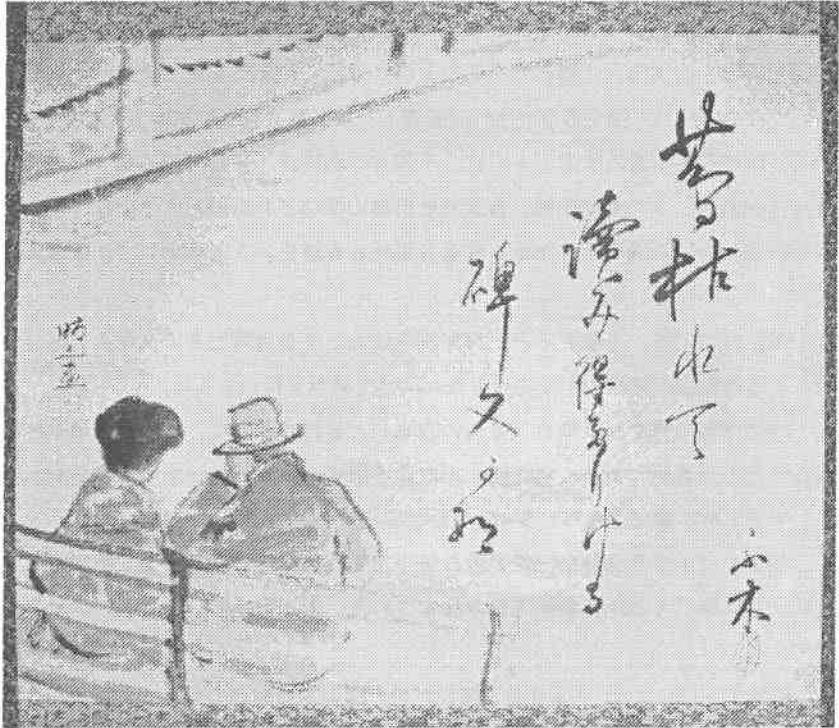 蔦枯れて
讀み得たりける
碑文かな
不木